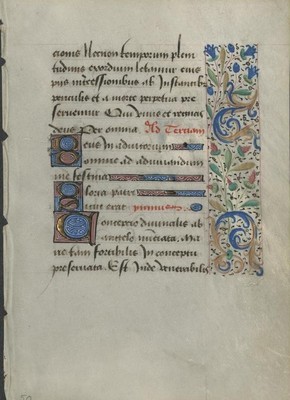 cionis Necnon temporum plem
tudinis exordium letamur eius
pijs intercessionibus ab Instantib
periculis et a morte perpetua pre
seruemur Qui viuis et regnas
deus Per omnia. Ad Terciam
Deus In adiutorium
Domine ad adiuuandum
me festina
Gloria patri
Sicut erat
Conceptio virginalis ab
angelo nunciata. Ma
rie tam fertilis In conceptu
preseruata. Est Inde venerabilis